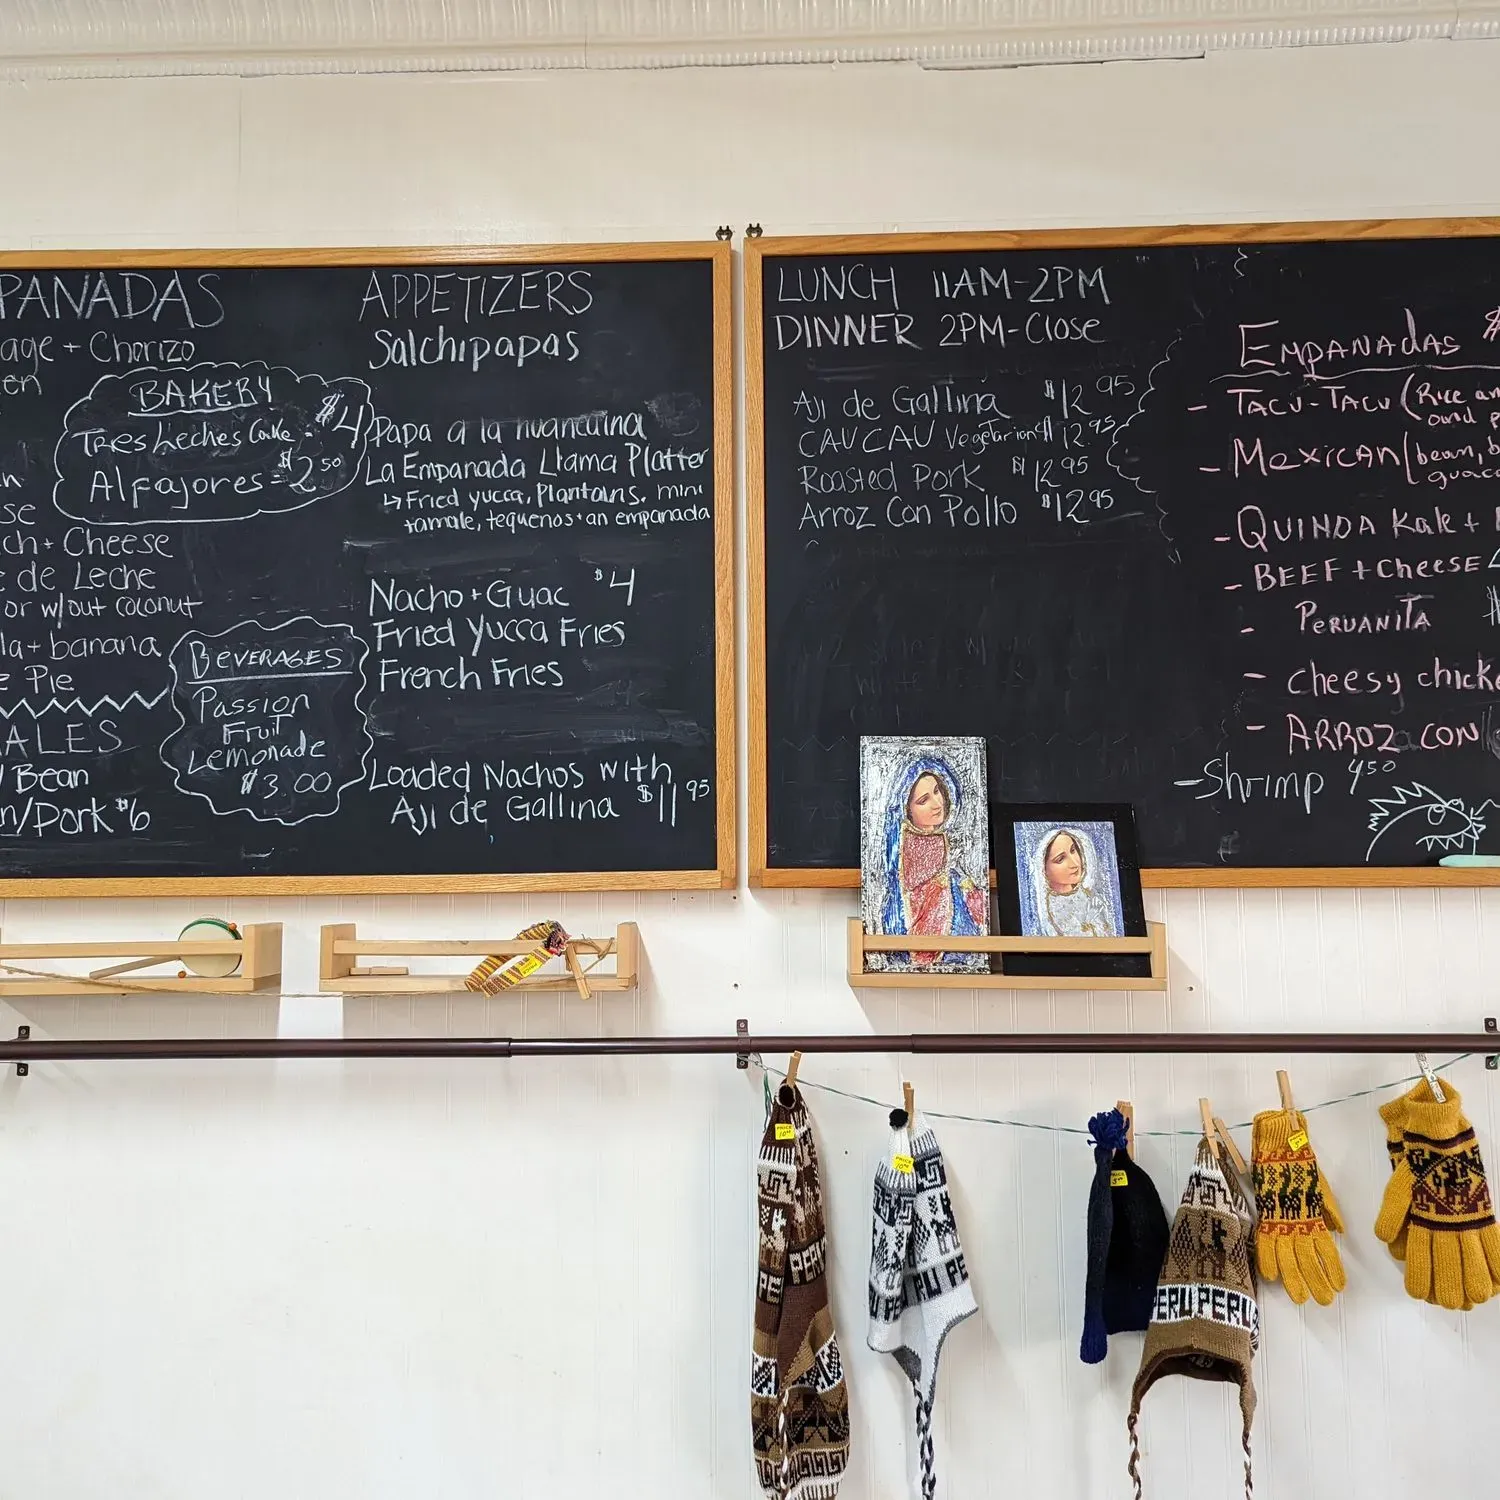 PANADAS
age + Chorizo
en
BAKERY
Tres Leches Cake - $4
Alfajores = $2.50
se
ch + Cheese
de Leche
or w/out coconut
la + banana
e Pie
ALES
Bean
n/Pork $6
BEVERAGES
Passion
Fruit
Lemonade
$3.00
APPETIZERS
Salchipapas
Papa a la huancaina
La Empanada Llama Platter
↳ Fried yucca, Plantains, mini
tamale, tequenos + an empanada
Nacho + Guac $4
Fried Yucca Fries
French Fries
Loaded Nachos with
Aji de Gallina $11.95
LUNCH 11AM-2PM
DINNER 2PM-Close
Aji de Gallina $12.95
CAU CAU Vegetarian $12.95
Roasted Pork $12.95
Arroz Con Pollo $12.95
EMPANAdAS $
- TACU-TACU (Rice an
- MEXICAN (bean, b
guac
- QUINOA Kale +
- BEEF + Cheese
- PERUANITA
- cheesy chick
- ARROZ CON
- Shrimp 4.50
PRICE
10
PRICE
10
PRICE
PE PERU
RU PE
PERU PERU